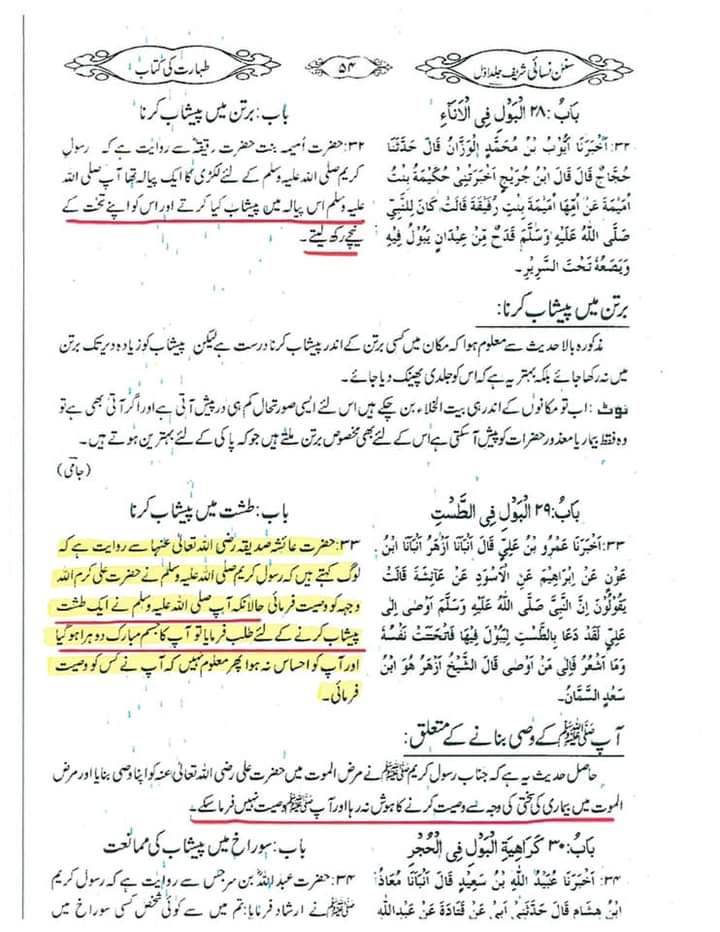 سنن نسائی شریف جلد اول
۵۴
طہارت کی کتاب
بَابُ: ۲۸ الْبَوْلِ فِی الْاَنَاءِ
۳۲: اَخْبَرَنَا اَیُّوْبُ بْنُ مُحَمَّدٍ الْوَزَّانُ قَالَ حَدَّثَنَا
حَجَّاجٌ قَالَ قَالَ ابْنُ جُرَیْجٍ اَخْبَرَتْنِیْ حُکَیْمَةُ بِنْتُ
اُمَیْمَةَ عَنْ اُمِّھَا اُمَیْمَةَ بِنْتِ رُقَیْقَةَ قَالَتْ کَانَ لِلنَّبِیِّ
صَلَّی اللّٰہُ عَلَیْہِ وَسَلَّمَ قَدَحٌ مِّنْ عِیْدَانٍ یَبُوْلُ فِیْہِ
وَیَضَعُہٗ تَحْتَ السَّرِیْرِ۔
باب: برتن میں پیشاب کرنا
۳۲: حضرت اُمیمہ بنت حضرت رقیقہؓ سے روایت ہے کہ رسول
کریم صلی اللہ علیہ وسلم کے لئے لکڑی کا ایک پیالہ تھا آپ صلی اللہ
علیہ وسلم اس پیالہ میں پیشاب کیا کرتے اور اس کو اپنے تخت کے
نیچے رکھ لیتے۔
برتن میں پیشاب کرنا:
مذکورہ بالا حدیث سے معلوم ہوا کہ مکان میں کسی برتن کے اندر پیشاب کرنا درست ہے لیکن پیشاب کو زیادہ دیر تک برتن
میں نہ رکھا جائے بلکہ بہتر یہ ہے کہ اس کو جلدی پھینک دیا جائے۔
نوٹ: اب تو مکانوں کے اندر ہی بیت الخلاء بن چکے ہیں اس لئے ایسی صورتحال کم ہی در پیش آتی ہے اور اگر آتی بھی ہے تو
وہ فقط بیمار یا معذور حضرات کو پیش آسکتی ہے اس کے لئے بھی مخصوص برتن ملتے ہیں جو کہ پاکی کے لئے بہترین ہوتے ہیں۔
(جامی)
بَابُ: ۲۹ الْبَوْلِ فِی الطَّسْتِ
۳۳: اَخْبَرَنَا عَمْرُو بْنُ عَلِیٍّ قَالَ اَنْبَاَنَا اَزْھَرُ اَنْبَاَنَا ابْنُ
عَوْنٍ عَنْ اِبْرَاھِیْمَ عَنِ الْاَسْوَدِ عَنْ عَائِشَةَ قَالَتْ
یَقُوْلُوْنَ اِنَّ النَّبِیَّ صَلَّی اللّٰہُ عَلَیْہِ وَسَلَّمَ اَوْصٰی اِلٰی
عَلِیٍّ لَقَدْ دَعَا بِالطَّسْتِ لِیَبُوْلَ فِیْھَا فَانْخَنَثَتْ نَفْسُہٗ
وَمَا اَشْعُرُ فَاِلٰی مَنْ اَوْصٰی قَالَ الشَّیْخُ اَزْھَرُ ھُوَ ابْنُ
سَعْدٍ السَّمَّانُ۔
باب: طشت میں پیشاب کرنا
۳۳: حضرت عائشہ صدیقہ رضی اللہ تعالیٰ عنہا سے روایت ہے کہ
لوگ کہتے ہیں کہ رسول کریم صلی اللہ علیہ وسلم نے حضرت علی کرم اللہ
وجہہ کو وصیت فرمائی حالانکہ آپ صلی اللہ علیہ وسلم نے ایک طشت
پیشاب کرنے کے لئے طلب فرمایا تو آپ کا جسم مبارک دوہرا ہو گیا
اور آپ کو احساس نہ ہوا پھر معلوم نہیں کہ آپ نے کس کو وصیت
فرمائی۔
آپ ﷺ کے وصی بنانے کے متعلق:
حاصل حدیث یہ ہے کہ جناب رسول کریم ﷺ نے مرض الموت میں حضرت علی رضی اللہ تعالیٰ عنہ کو اپنا وصی بنایا اور مرض
الموت میں بیماری کی سختی کی وجہ سے وصیت کرنے کا ہوش نہ رہا اور آپ ﷺ وصیت نہیں فرما سکے۔
بَابُ: ۳۰ کَرَاھِیَةِ الْبَوْلِ فِی الْجُحْرِ
۳۴: اَخْبَرَنَا عُبَیْدُ اللّٰہِ بْنُ سَعِیْدٍ قَالَ اَنْبَاَنَا مُعَاذُ
ابْنُ ھِشَامٍ قَالَ حَدَّثَنِیْ اَبِیْ عَنْ قَتَادَةَ عَنْ عَبْدِاللّٰہِ
باب: سوراخ میں پیشاب کی ممانعت
۳۴: حضرت عبداللہؓ بن سرجس سے روایت ہے کہ رسول کریم
ﷺ نے ارشاد فرمایا: تم میں سے کوئی شخص کسی سوراخ میں